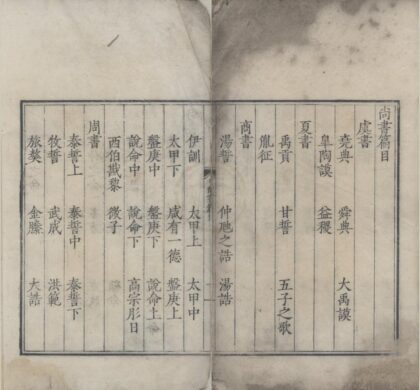 尚書篇目
虞書
堯典 舜典 大禹謨
皋陶謨 益稷
夏書
禹貢 甘誓 五子之歌
胤征
商書
湯誓 仲虺之誥 湯誥
伊訓 太甲上 太甲中
太甲下 咸有一德 盤庚上
盤庚中 盤庚下 說命上
說命中 說命下 高宗肜日
西伯戡黎 微子
周書
泰誓上 泰誓中 泰誓下
牧誓 武成 洪範
旅獒 金縢 大誥